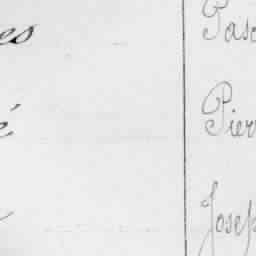 es Pasc
é Pier
Josep